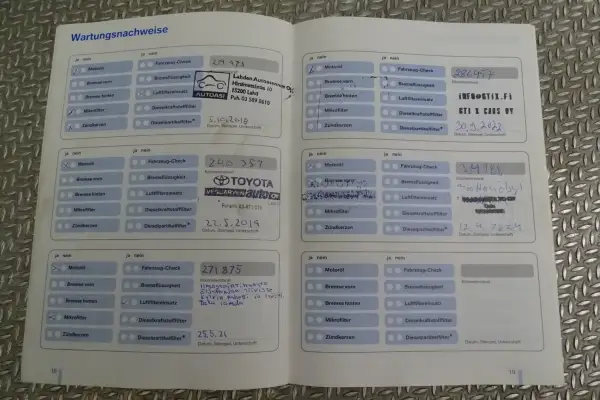 Wartungsnachweise
ja nein
Motoröl
Bremse vorn
Bremse hinten
Mikrofilter
Zündkerzen
Fahrzeug-Check
Bremsflüssigkeit
Luftfiltereinsatz
Dieselkraftstofffilter
Dieselpartikelfilter*
AUTOASI
15200 Lahti
5.10.2018
Datum, Stempel, Unterschrift
ja nein
Motoröl
Bremse vorn
Bremse hinten
Mikrofilter
Zündkerzen
Fahrzeug-Check
Bremsflüssigkeit
Luftfiltereinsatz
Dieselkraftstofffilter
Dieselpartikelfilter*
240 757
TOYOTA
22.5.2019
Datum, Stempel, Unterschrift
ja nein
Motoröl
Bremse vorn
Bremse hinten
Mikrofilter
Zündkerzen
Fahrzeug-Check
Bremsflüssigkeit
Luftfiltereinsatz
Dieselkraftstofffilter
Dieselpartikelfilter*
271 875
25.5.21
Datum, Stempel, Unterschrift
18
ja nein
Motoröl
Bremse vorn
Bremse hinten
Mikrofilter
Zündkerzen
Fahrzeug-Check
Bremsflüssigkeit
Luftfiltereinsatz
Dieselkraftstofffilter
Dieselpartikelfilter*
GTI X CARS OY
30.9.2022
Datum, Stempel, Unterschrift
ja nein
Motoröl
Mikrofilter
Zündkerzen
Fahrzeug-Check
Bremsflüssigkeit
Luftfiltereinsatz
Dieselkraftstofffilter
Dieselpartikelfilter*
Datum, Stempel, Unterschrift
ja nein
Motoröl
Bremse vorn
Bremse hinten
Mikrofilter
Zündkerzen
Fahrzeug-Check
Bremsflüssigkeit
Luftfiltereinsatz
Dieselkraftstofffilter
Dieselpartikelfilter*
Datum, Stempel, Unterschrift
19